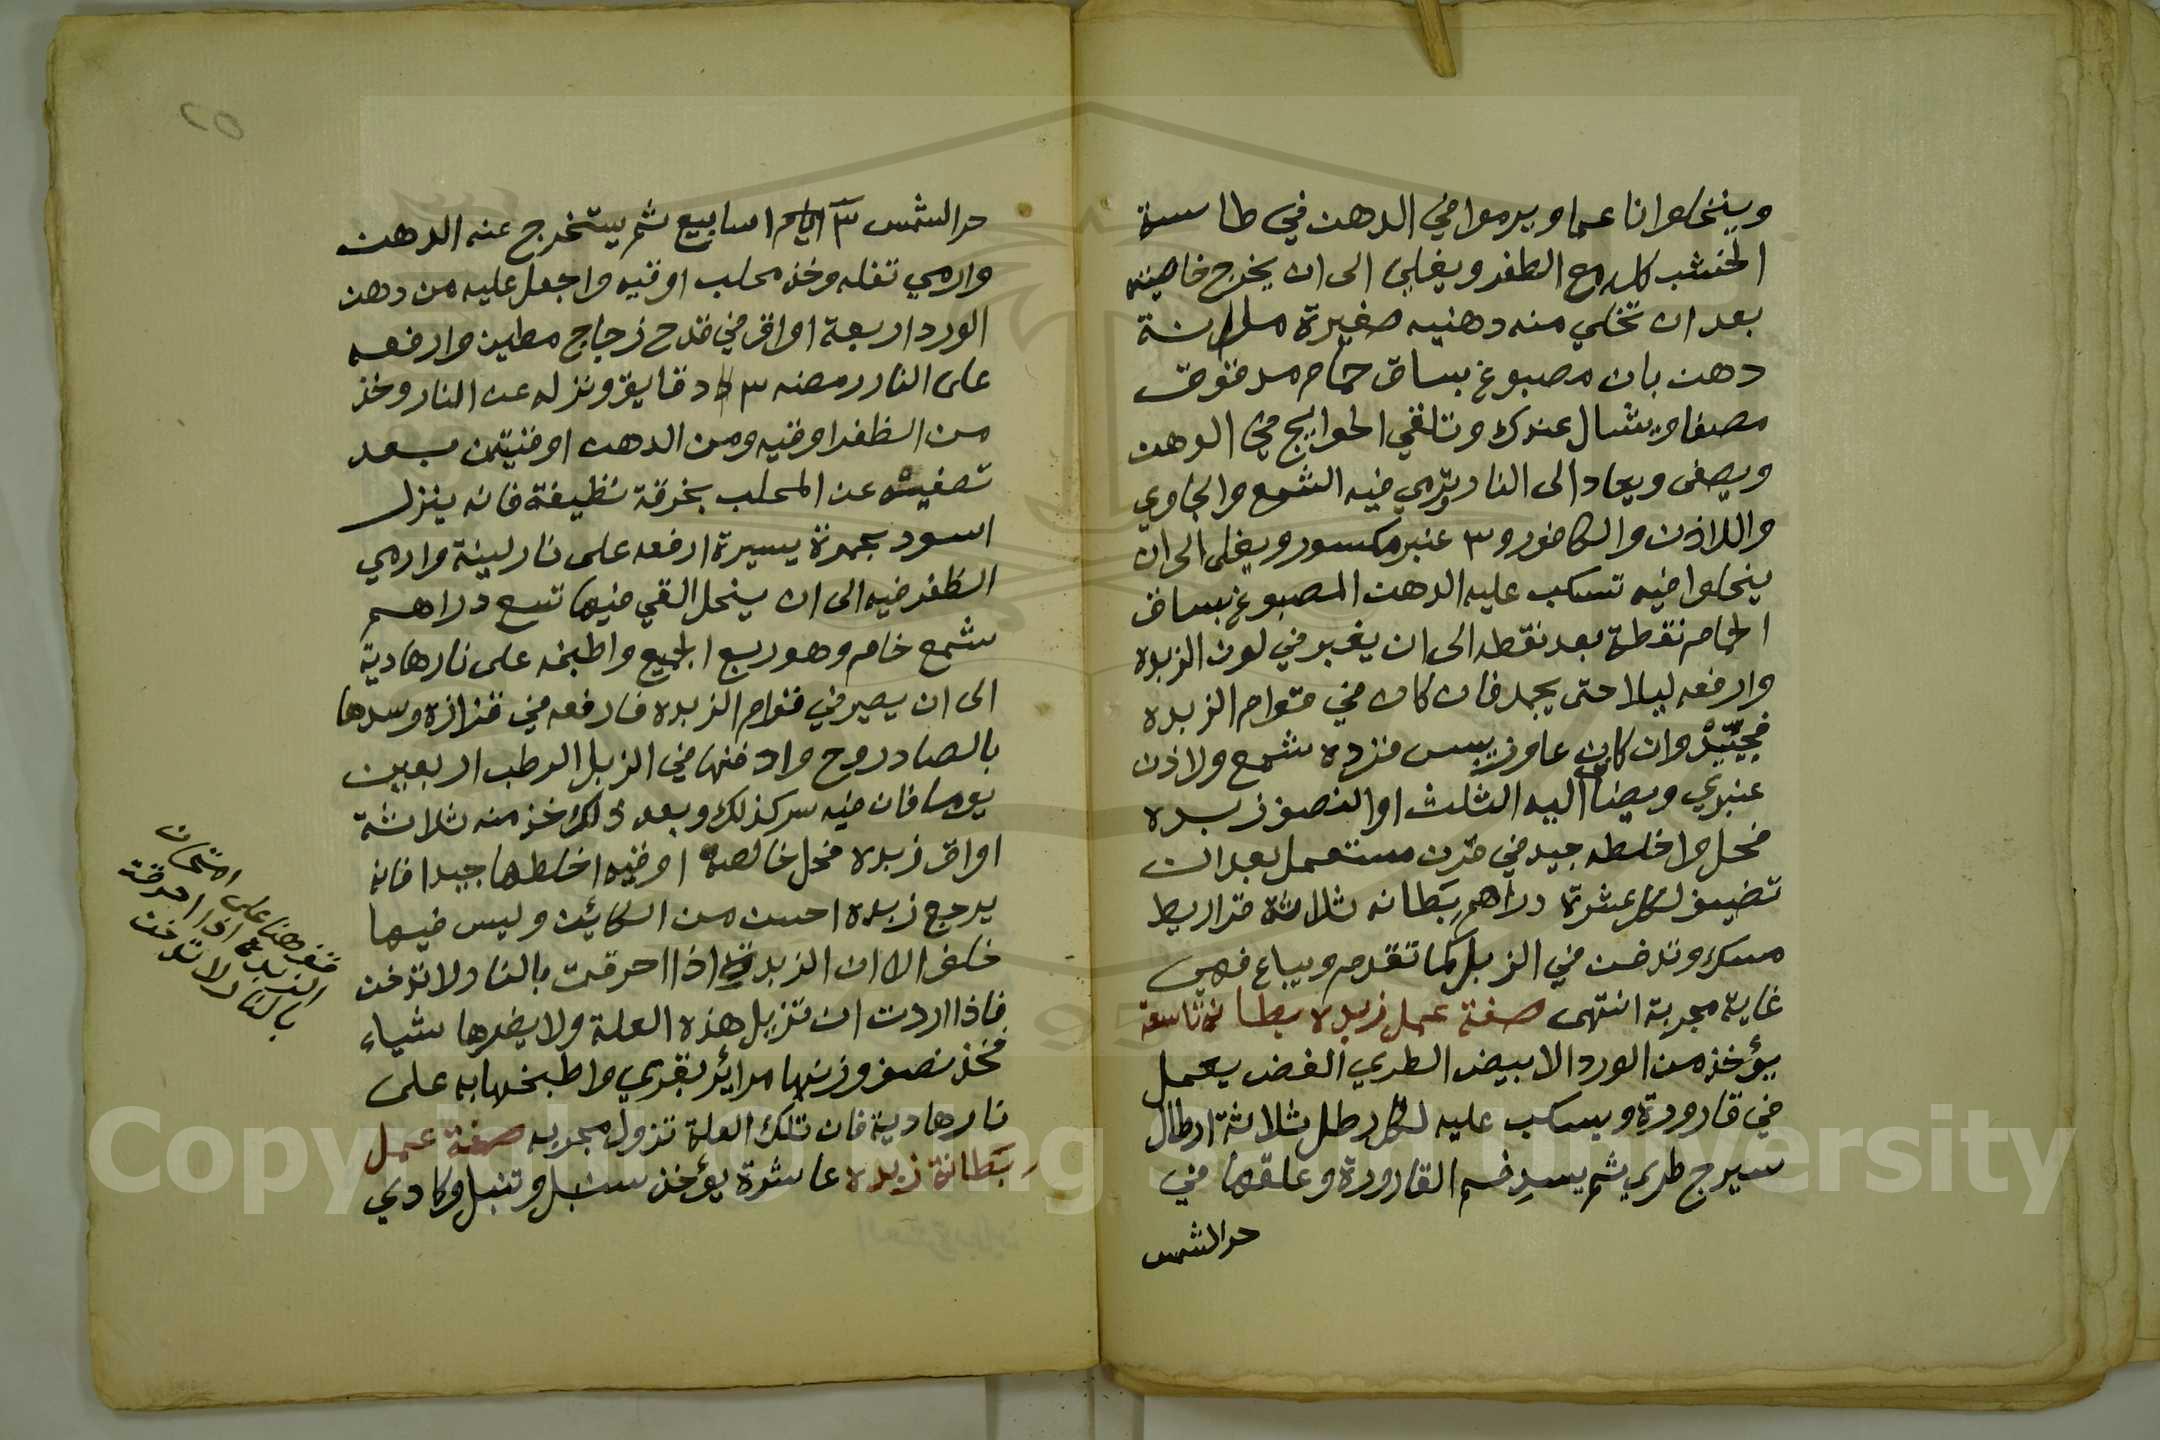 وينخلوا ناعما ويرموا في الدهن في طاسة
الخشب كله مع الظفر ويغلي الى ان يخرج خاصيته
بعد ان تخلي منه دهنيه صغيرة ملرانة
دهن بان مصبوغ بساق حمام مدقوق
مصفا ويشال عندك وتلقي الحوايج في الدهن
ويصفى ويعاد الى النار وترمي فيه الشمع والجاوي
واللاذن والكافور و٣ عنبر مكسور ويغلى الى ان
ينحلوا فيه تسكب عليه الدهن المصبوغ بساق
الحام نقطة بعد نقطه الى ان يغبر في لون الزبده
وارفعه ليلا حتى يجمد فان كان في قوام الزبده
فجيّدْ وان كان عاوز يبس فزده شمع ولاذن
عنبري ويضاف اليه الثلث او النصف زبده
فحل واخلطه جيد في قرن مستعمل بعد ان
تضيف لكل عشرة دراهم بَطانه ثلاثة قراريط
مسك وتدفن في الزبل كما تقدم ويباع فهي
غاية مجربة انتهى صفة عمل زبده بطانة تاسعة
يؤخذ من الورد الابيض الطري الغض يعمل
في قارورة ويسكب عليه لكل رطل ثلاثة ارطال
سيرج طري ثم يسد فم القارورة وعلقها في
حر الشمس
٢٥
حر الشمس ٣ اسابيع ثم يستخرج عنه الدهن
وارمي تفله وخذ محلب اوقيه واجعل عليه من دهن
الورد اربعة اواق في قدح زجاج مطين وارفعه
على النار رمضه ٣ دقايق ونزله عن النار وخذ
من الظفر اوقيه ومن الدهن اوقيتين بعد
تصفيته عن المحلب بخرقة نظيفة فانه ينزل
اسود بحمرة يسيرة ارفعه على نار لينة وارمي
الظفر فيه الى ان ينحل القي فيها تسع دراهم
شمع خام وهو ربع الجميع واطبخه على نار هادية
الى ان يصير في قوام الزبده فارفعه في قزازه وسدها
بالصاروج وادفنها في الزبل الرطب اربعين
يوما فان فيه سر كذلك وبعد ذلك خذ منه ثلاثة
اواق زبده فحل خالصة اوقيه اخلطها جيدا فانه
يرجع زبده احسن من الكائن وليس فيها
خلف الا ان الزبدة اذا احرقت بالنار لا تدخن
فاذا اردت ان تزيل هذه العلة ولا يضرها شياء
فخذ نصف وزنها مرائر بقري واطبخها به على
نار هادية فان تلك العلة تزول مجربه صفة عمل
بَطانة زبده عاشرة يؤخذ سنبل وتنبل وكادي
قف هنا على امتحان
الزبد اذا احرقته
بالنار لا تدخن
Copyright © King Saud University